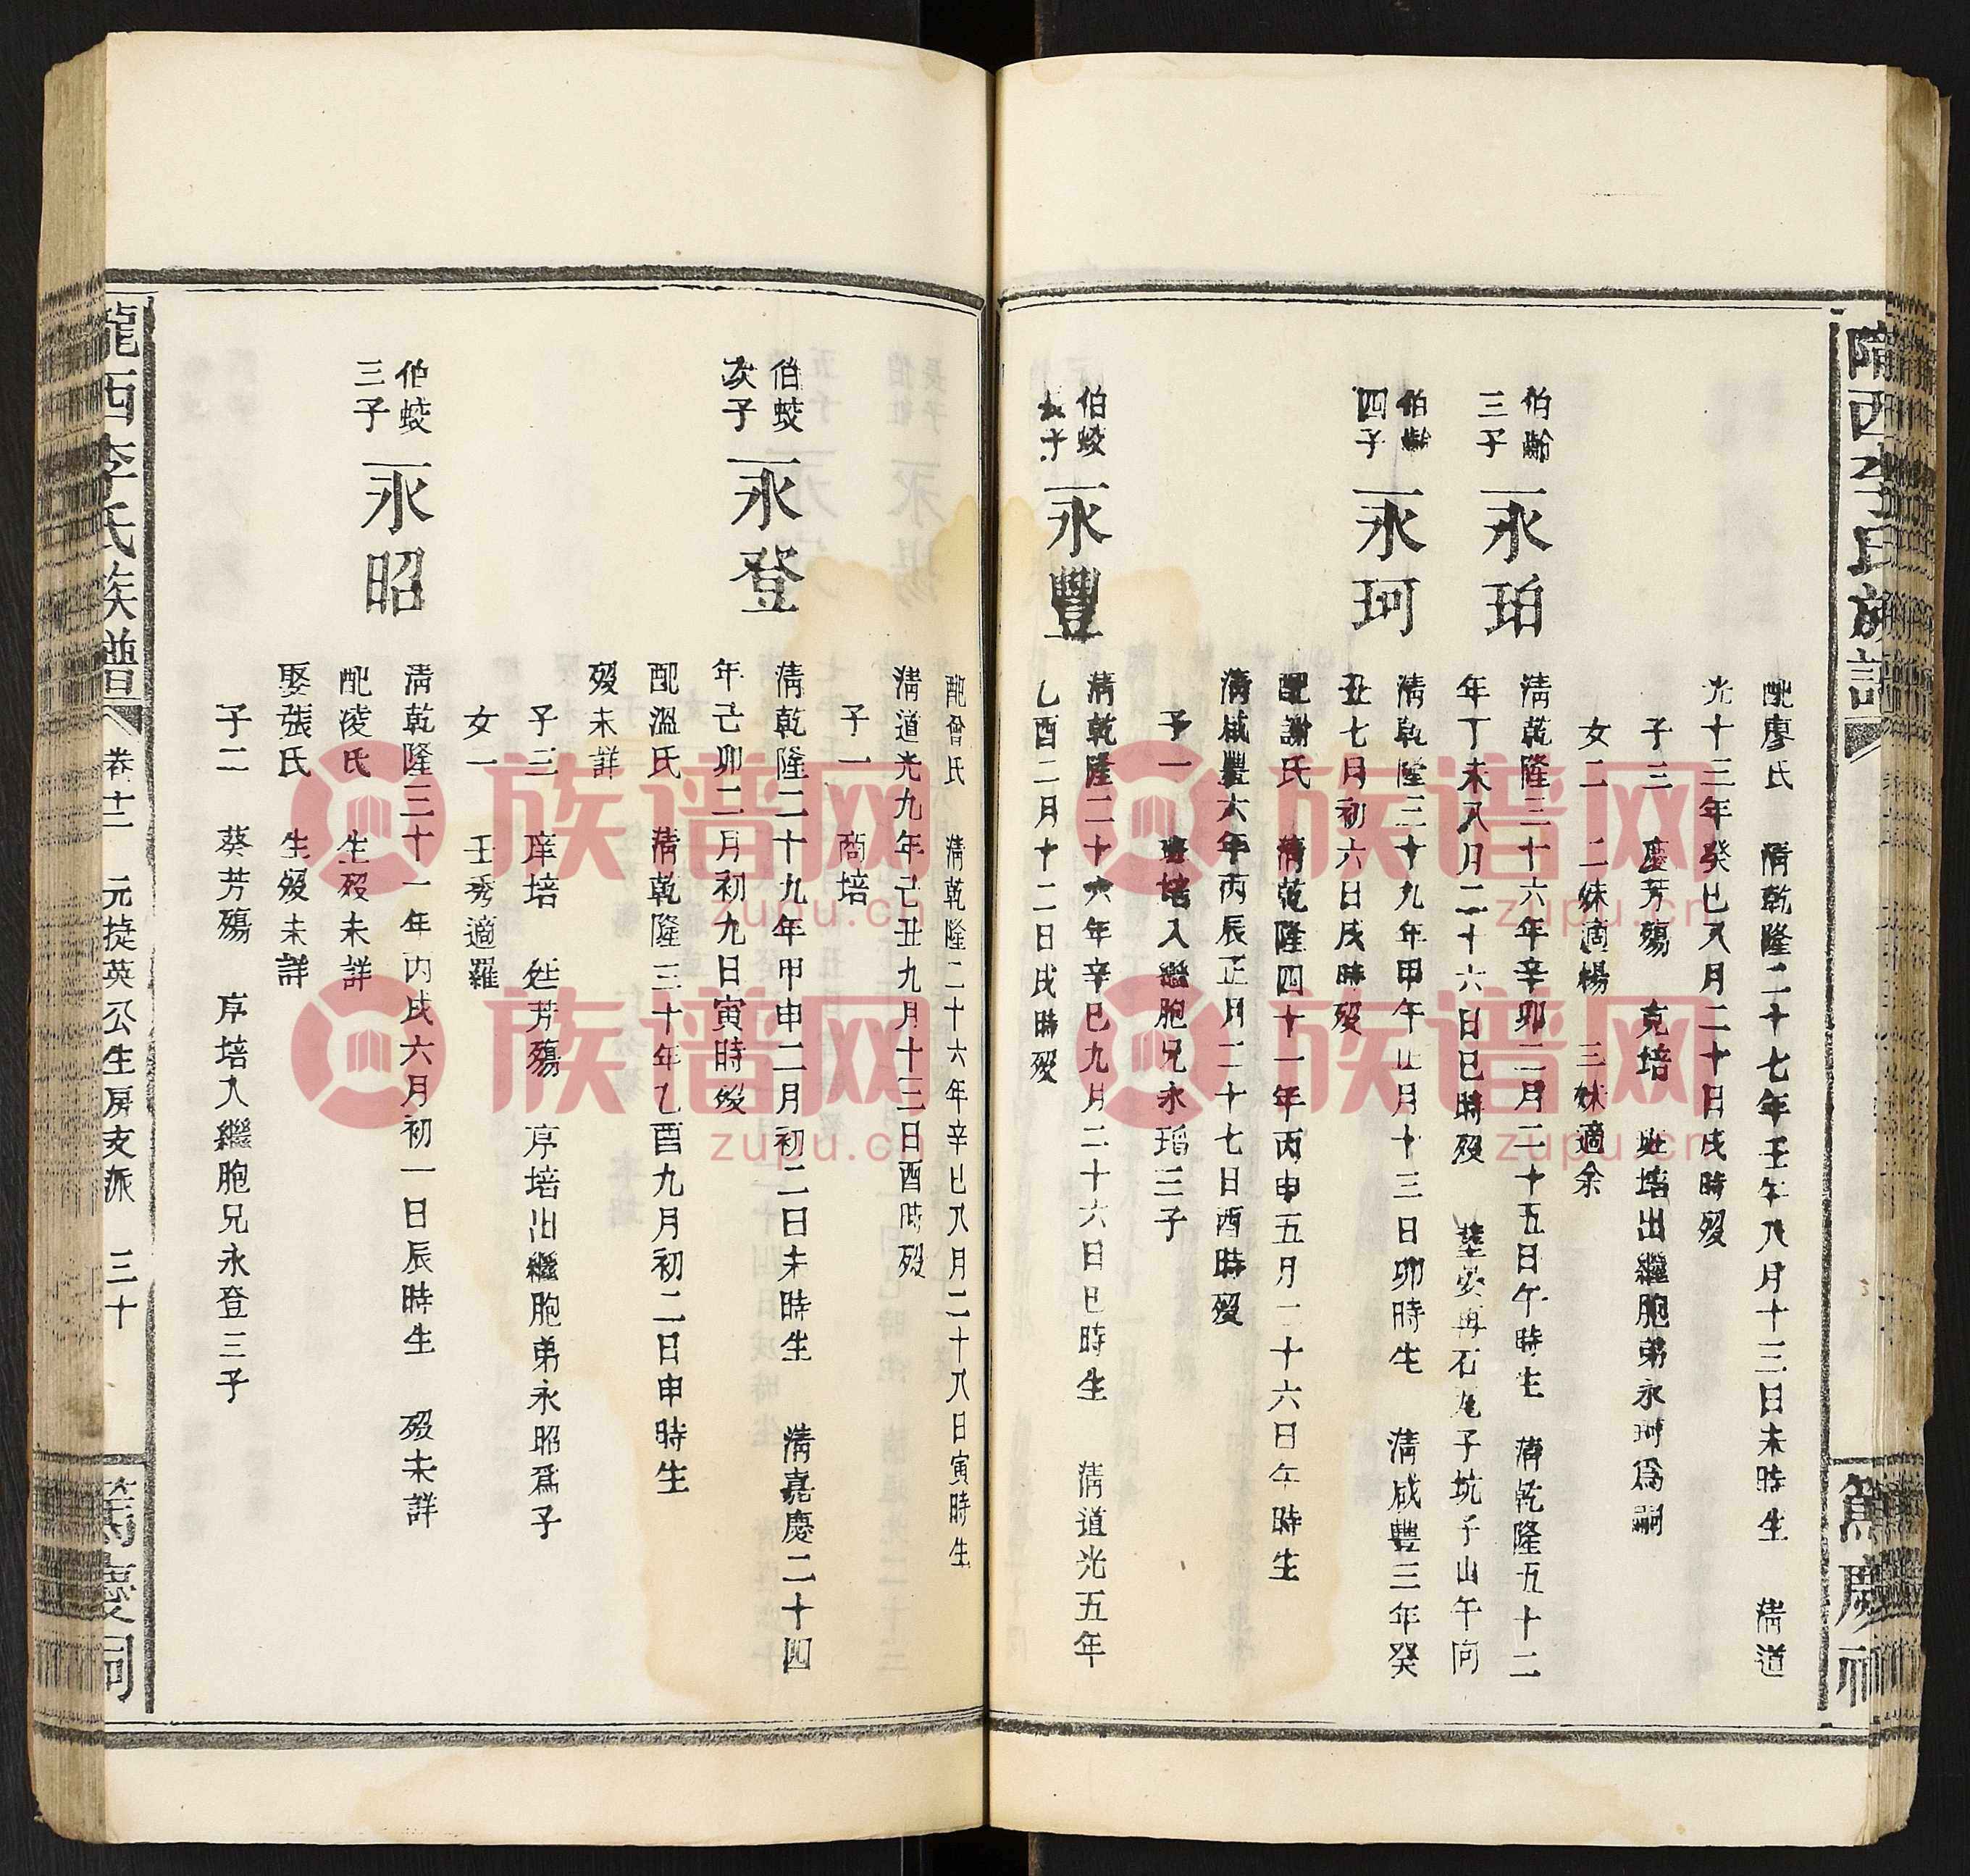 隴西李氏族譜
篤慶祠
配廖氏 清乾隆二十七年壬午八月十三日未時生 清道
光十三年癸巳八月二十日戌時歿
子三 慶芳殤 克培 培出繼胞弟永珂爲嗣
女二 二妹適楊 三妹適余
伯齡
三子
永珀
清乾隆三十六年辛卯二月二十五日午時生 清乾隆五十二
年丁未八月二十六日巳時歿 石尾子坑子山午向
伯齡
四子
永珂
清乾隆三十九年甲午正月十三日卯時生 清咸豐三年癸
丑七月初六日戌時歿
配謝氏 清乾隆四十一年丙申五月二十六日午時生
清咸豐六年丙辰正月二十七日酉時歿
子一 培入繼胞兄永三子
伯蛟
長子
永豐
清乾隆二十六年辛巳九月二十六日巳時生 清道光五年
乙酉二月十二日戌時歿
配會氏 清乾隆二十六年辛巳八月二十八日寅時生
清道光九年己丑九月十三日酉時歿
子一 商培
伯蛟
次子
永登
清乾隆二十九年甲申二月初二日未時生 清嘉慶二十四
年己卯二月初九日寅時歿
配溫氏 清乾隆三十年乙酉九月初二日申時生
歿未詳
子三 庠培 芳殤 序培出繼胞弟永昭爲子
女一 壬秀適羅
伯蛟
三子
永昭
清乾隆三十一年丙戌六月初一日辰時生 歿未詳
配凌氏 生歿未詳
娶張氏 生歿未詳
子二 葵芳殤 序培入繼胞兄永登三子
隴西李氏族譜 卷十二 元捷英公生房支派 三十 篤慶祠
族谱网
zupu.cn
族谱网
zupu.cn
族谱网
zupu.cn
族谱网
zupu.cn